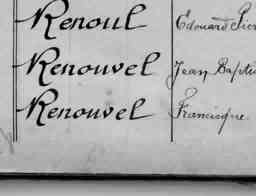 Renoul Edouard Pier
Renouvel Jean Baptis
Renouvel Francisque